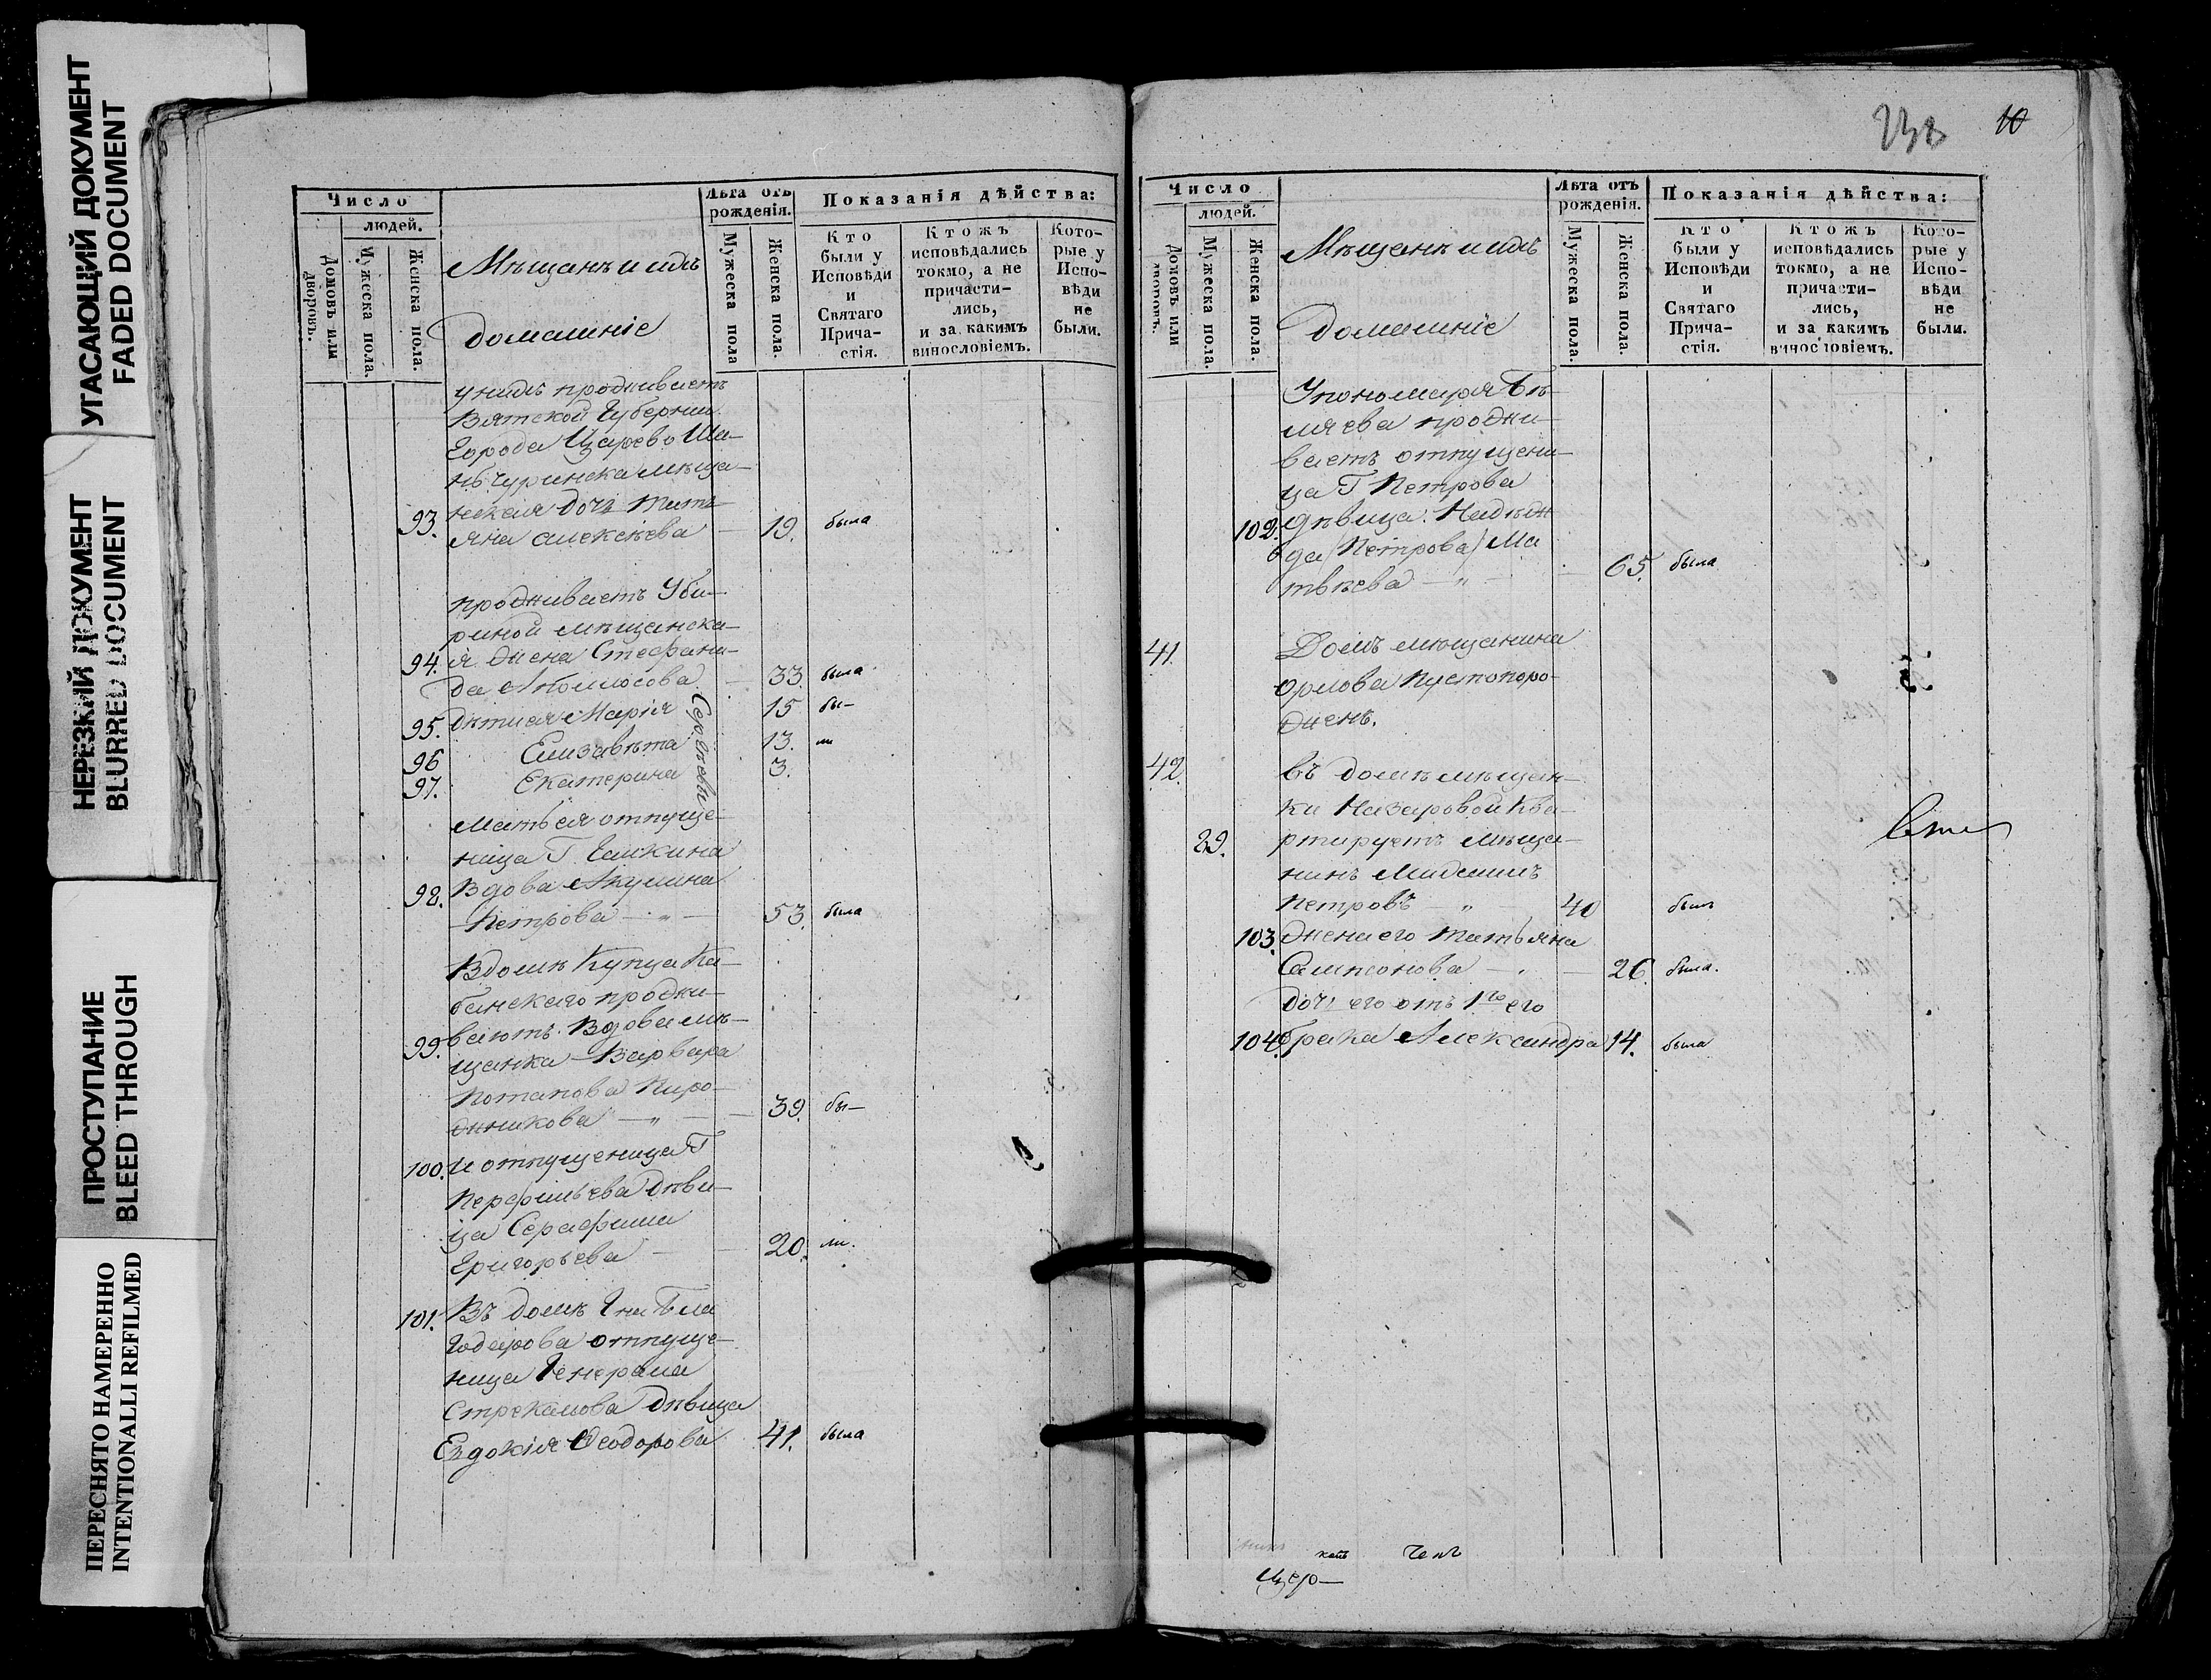 УГАСАЮЩИЙ ДОКУМЕНТ
FADED DOCUMENT
НЕРЕЗКИЙ ДОКУМЕНТ
BLURRED DOCUMENT
ПРОСТУПАНИЕ
BLEED THROUGH
ПЕРЕСНЯТО НАМЕРЕННО
INTENTIONALLI REFILMED
Число
людей.
Домовъ или дворовъ.
Мужеска пола.
Женска пола.
Мѣщанъ и ихъ
домашніе
Лѣта отъ рожденія.
Мужеска пола
Женска пола.
Показанія дѣйства:
Кто были у Исповѣди и Святаго Прича-стія.
Ктожъ исповѣдались токмо, а не причасти-лись, и за какимъ винословіемъ.
Кото-рые у Испо-вѣди не были.
у нихъ проживаетъ
Вятской Губерніи
Города Царево Ша-
нъчуринска мѣща-
нская дочь Тать-
93. яна Алексѣева 19. была
проживаетъ Уби-
риной мѣщанска-
94. я жена Стефани-
да 33. была
95. дѣти ея Марія 15 бы-
96 Елизавѣта 13. ли
97. Екатерина 3.
Сергѣевы
Мать ея отпуще-
ница Г.
98. Вдова Акулина
Петрова — „ — 53. была
В домѣ Купца Ка-
банскаго прожи-
99. ваютъ. Вдова мѣ-
щанка Варвара
Потапова Пиро-
жникова — „ — 39. бы—
100. и отпущеница Г
Перфильева дѣви-
ца Серафима
Григорьева 20. ли.
101. Въ домѣ Гна Бла
годарова отпуще-
ница Генерала
Стрекалова дѣвица
Евдокія Феодорова 41. была
238 10
Число
людей.
Домовъ или дворовъ.
Мужеска пола.
Женска пола.
Мѣщанъ и ихъ
домашніе
Лѣта отъ рожденія.
Мужеска пола.
Женска пола.
Показанія дѣйства:
Кто были у Исповѣди и Святаго Прича-стія.
Ктожъ исповѣдались токмо, а не причасти-лись, и за какимъ винословіемъ.
Кото-рые у Испо-вѣди не были.
У пономаря Бѣ-
ляева прожи-
ваетъ отпущени-
ца Г Петрова
102. дѣвица. Надѣж
да (Петрова) Ма
твѣева — „ — 65. была
41. Домъ мѣщанина
Орлова пустопоро-
женъ.
42. въ домѣ мѣщан-
ки Назаровой Ква-
29. ртируетъ мѣща-
нинъ
Петровъ — „ — 40 былъ
103. жена его Татьяна
Сампсонова 26. была.
дочь его отъ 1го его
104. брака Александра 14. была